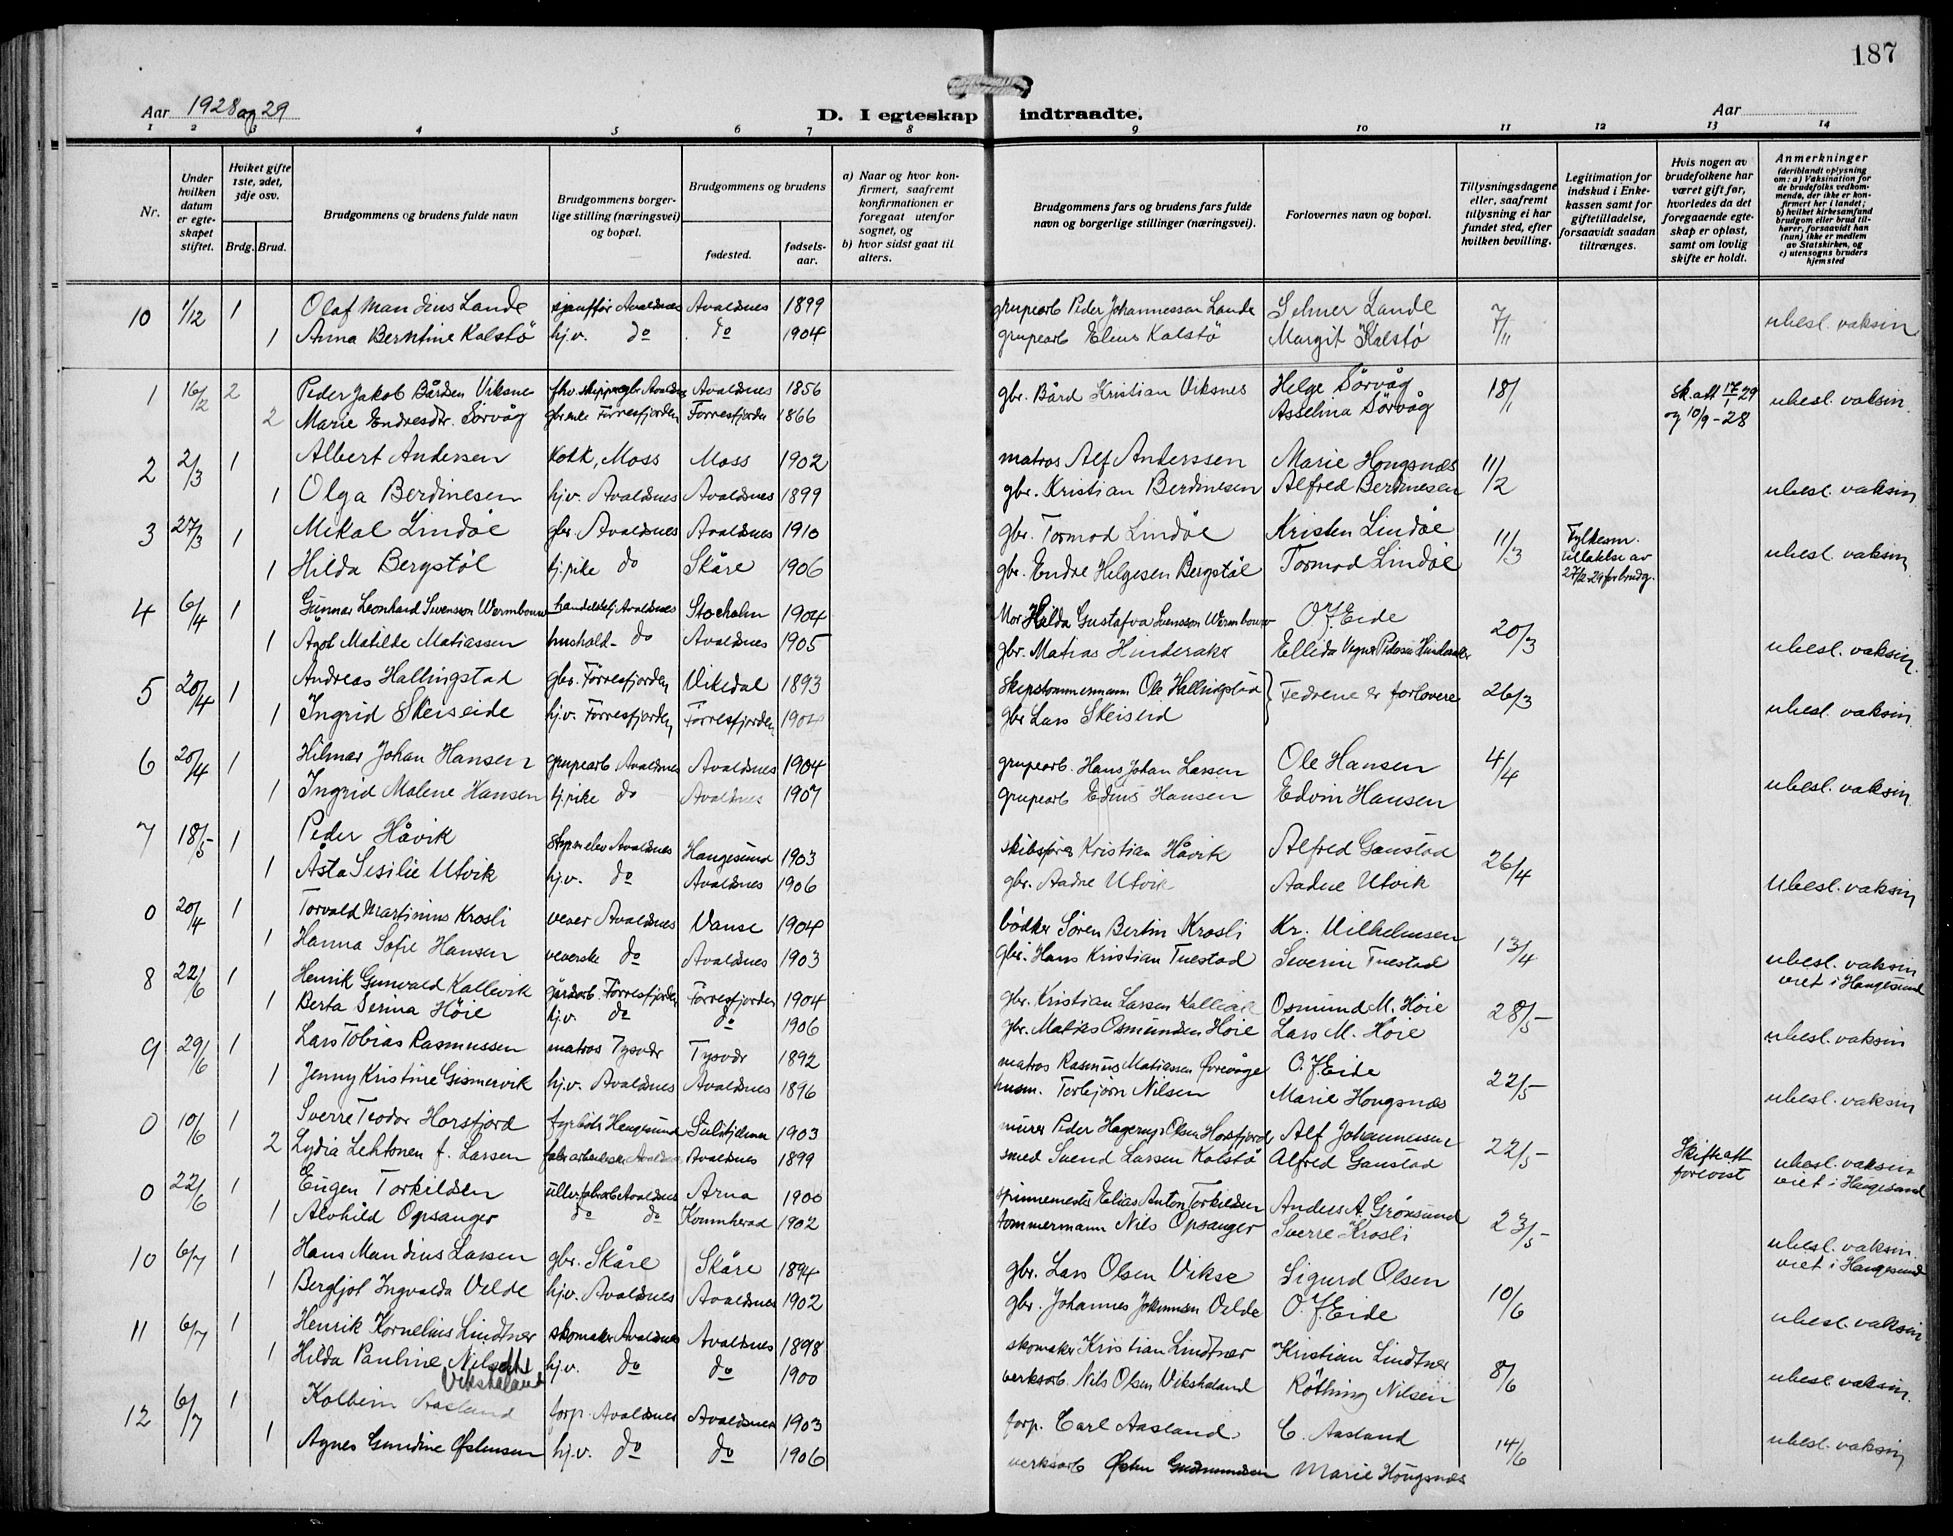 187
Aar 1928 og 29
D. I egteskap indtraadte.
Aar
1 2 3 4 5 6 7 8 9 10 11 12 13 14
Nr.
Under hvilken datum er egteskapet stiftet.
Hviket gifte 1ste, 2det, 3dje osv.
Brdg. Brud.
Brudgommens og brudens fulde navn
Brudgommens borgerlige stilling (næringsvei) og bopæl.
Brudgommens og brudens
fødested.
fødselsaar.
a) Naar og hvor konfirmert, saafremt konfirmationen er foregaat utenfor sognet, og
b) hvor sidst gaat til alters.
Brudgommens fars og brudens fars fulde navn og borgerlige stillinger (næringsvei).
Forlovernes navn og bopæl.
Tillysningsdagene eller, saafremt tillysning ei har fundet sted, efter hvilken bevilling.
Legitimation for indskud i Enkekassen samt for giftetilladelse, forsaavidt saadan tiltrænges.
Hvis nogen av brudefolkene har været gift før, hvorledes da det foregaaende egteskap er opløst, samt om lovlig skifte er holdt.
Anmerkninger (deriblandt oplysning om: a) Vaksination for de brudefolks vedkommende, der ikke er konfirmert her i landet; b) hvilket kirkesamfund brudgom eller brud tilhører, forsaavidt han (hun) ikke er medlem av Statskirken, og c) utensogns bruders hjemsted
10 1/12 1 Olaf Mandius Lande sjauffør Avaldsnes Avaldsnes 1899 grupearb Peder Johannesson Lande Selmer Lande 7/11 ubesl. vaksin
1 Anna Berntine Kalstø hj.v. do do 1904 grupearb Elius Kalstø Margit Kalstø
1 16/2 2 Peder Jakob Bårdsen Viksne Avaldsnes 1856 gbr. Bård Kristian Viksnes Helge Sørvåg 18/1 Sk.att 17/1 29 ubesl. vaksin.
2 Marie Endresdtr. Sørvåg Førresfjorden Førresfjorden 1866 Asselina Sørvåg og 10/9-28
2 2/3 1 Albert Andersen Kokk, Moss Moss 1902 matros Alf Anderssen Marie Hongsnes 11/2
1 Olga Berdinesen hj.v. Avaldsnes Avaldsnes 1899 gbr. Kristian Berdinesen Alfred Berdinesen ubesl. vaksin
3 27/3 1 Mikal Lindøe gbr. Avaldsnes Avaldsnes 1910 gbr. Tormod Lindøe Kristen Lindøe 11/3 Fylkesm. tillatelse av 27/2-29 for brudg. ubesl. vaksin
1 Hilda Bergstøl tj.pike do Skåre 1906 gbr. Endre Helgesen Bergstøl Tormod Lindøe
4 6/4 1 Gunnar Leonhard Svensson Wermbouer handelsbtj. Avaldsnes Stocholm 1904 Mor Hilda Gustafva Svensson Wermbouer O. J. Eide 20/3
1 Agot Matilde Matiassen hushold- do Avaldsnes 1905 gbr. Matias Hinderaker Ellida Pedersen Hinderaker ubesl. vaksin.
5 20/4 1 Andreas Hallingstad gbr. Førresfjorden Vikedal 1893 skipstømmermann Ole Hallingstad Fedrene er forlovere 26/3
1 Ingrid Skeiseide hj.v. Førresfjorden Førresfjorden 1904 gbr Lars Skeiseid ubesl. vaksin.
6 20/4 1 Hilmar Johan Hansen grupearb Avaldsnes Avaldsnes 1904 grupearb. Hans Johan Larsen Ole Hansen 4/4
1 Ingrid Malene Hansen tj.pike do Avaldsnes 1907 grupearb Edius Hansen Edvin Hansen ubesl. vaksin
7 18/5 1 Peder Håvik styrm.elev Avaldsnes Haugesund 1903 skibsfører Kristian Håvik Alfred Gaustad 26/4
1 Åsta Sesilie Utvik hj.v. do Avaldsnes 1906 gbr. Aadne Utvik Aadne Utvik ubesl. vaksin
0 20/4 1 Torvald Martinius Krosli vever Avaldsnes Vanse 1904 bødker Søren Bertin Krosli Kr. Vilhelmsen 13/4
1 Hanna Sofie Hansen veverske do Avaldsnes 1903 gbr. Hans Kristian Tuestad Severin Tuestad ubesl. vaksin viet i Haugesund
8 22/6 1 Henrik Gunvald Kallevik gårdarb. Førresfjorden Førresfjorden 1904 gbr. Kristian Larsen Kallevik Osmund M. Høie 28/5
1 Berta Serina Høie hj.v. do do 1906 gbr. Matias Osmundsen Høie Lars M. Høie ubesl. vaksin
9 29/6 1 Lars Tobias Rasmussen matros Tysvær Tysvær 1892 matros Rasmus Matiassen Ørevåge O. J. Eide 22/5
1 Jenny Kristine Gismervik hj.v. Avaldsnes Avaldsnes 1896 husm. Torbjørn Nilsen Marie Hongsnes ubesl. vaksin
0 10/6 1 Sverre Teodor Horsfjord fyrbøter Haugesund Sulitjelma 1903 murer Peder Hagerup Olsen Horsfjord Alf Johannessen 22/5
2 Lydia Lehtonen f. Larsen Avaldsnes 1899 smed Svend Larsen Kalstø Alfred Gaustad Skifteatt forevist ubesl. vaksin viet i Haugesund
0 22/6 1 Eugen Torkildsen Avaldsnes Arna 1900 spinnemester Elias Anton Torkildsen Anders A. Grønsund 23/5
1 Alvhild Opsanger do do Kvinnherad 1902 tømmermann Nils Opsanger Sverre Krosli ubesl. vaksin. viet i Haugesund
10 6/7 1 Hans Mandius Larsen gbr. Skåre Skåre 1894 gbr. Lars Olsen Vikse Sigurd Olsen 10/6
1 Bergljot Ingvalda Velde hj.v. Avaldsnes Avaldsnes 1902 gbr. Johannes Johannesen Velde O. J. Eide ubesl. vaksin
11 6/7 1 Henrik Kornelius Lindtner skomaker Avaldsnes Avaldsnes 1898 skomaker Kristian Lindtner Kristian Lindtner 8/6
1 Hilda Pauline Nilsen Vikshaland hj.v. do do 1900 verksarb. Nils Olsen Vikshaland Røthing Nilsen ubesl. vaksin.
12 6/7 1 Kolbein Aasland forp. Avaldsnes Avaldsnes 1903 forp. Carl Aasland C. Aasland 14/6
1 Agnes Gundine Østensen hj.v. do do 1906 verksarb Østen Gudmundsen Marie Hongsnes ubesl. vaksin